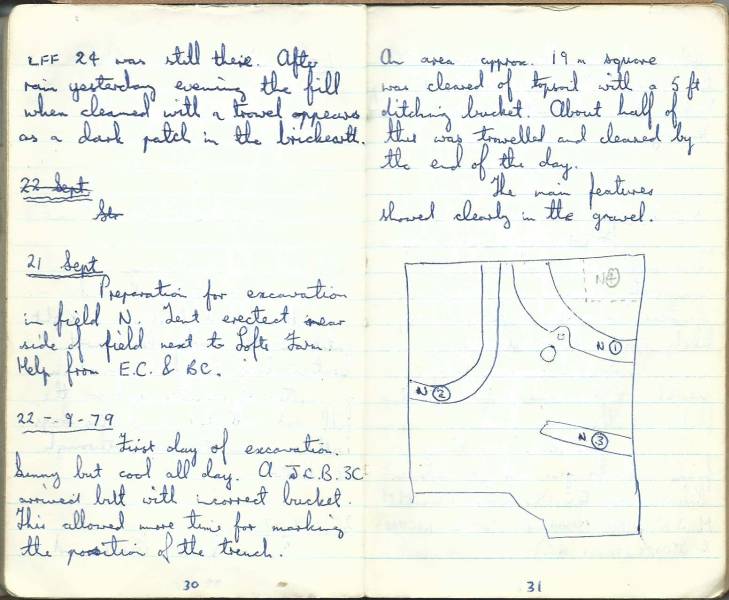 LFF 24 was still there. After
rain yesterday evening the fill
when cleaned with a trowel appears
as a dark patch in the brickearth.
22 Sept
21 Sept
Preparation for excavation
in field N. Tent erected near
side of field next to Lofts Farm.
Help from E.C. & B.C.
22-9-79
First day of excavation.
Sunny but cool all day. A J.C.B. 3C
arrived but with incorrect bucket.
This allowed more time for marking
the position of the trench.
30
An area approx. 19 m square
was cleared of topsoil with a 5 ft
ditching bucket. About half of
this was trowelled and cleaned by
the end of the day.
The main features
showed clearly in the gravel.
N 4
N 1
N 2
N 3
31